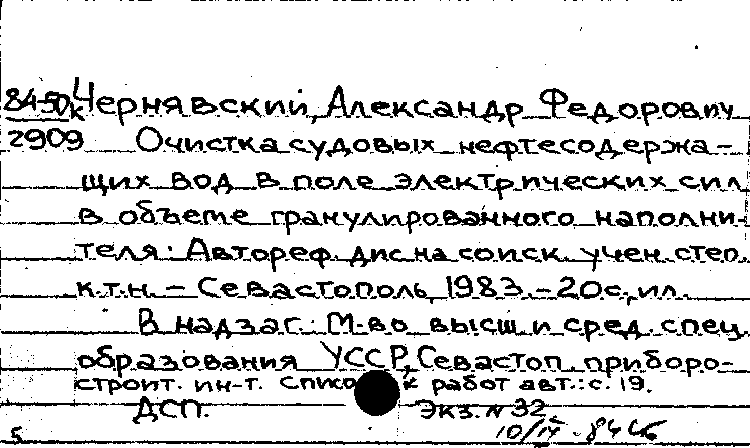 84-50к Чернявский, Александр Федорович
2909 Очистка судовых нефтесодержа-
щих вод в поле электрических сил
в объеме гранулированного наполни-
теля: Автореф. дис на соиск. учен. степ.
к.т.н. – Севастополь, 1983. – 20 с., ил.
В надзаг.: М-во высш и сред. спец.
образования УССР, Севастоп. приборо-
строит. ин-т. работ авт.: с. 19.
ДСП. Экз. N 32
10/IV-84
5